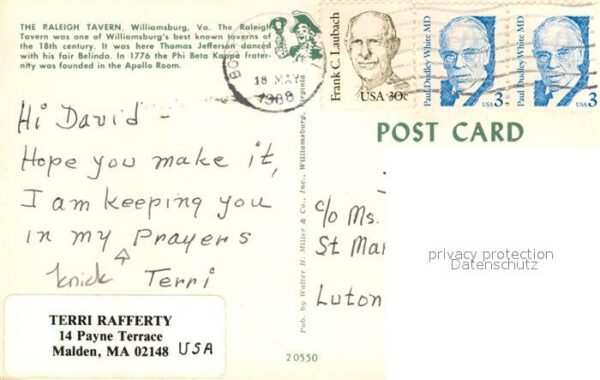 THE RALEIGH TAVERN, Williamsburg, Va. The Raleigh
Tavern was one of Williamsburg's best known taverns of
the 18th century. It was here Thomas Jefferson danced
with his fair Belinda. In 1776 the Phi Beta Kappa frater-
nity was founded in the Apollo Room.
18 MAY
1988
Frank C. Laubach
USA 30c
Paul Dudley White MD
USA 3
Paul Dudley White MD
USA 3
POST CARD
Hi David -
Hope you make it,
I am keeping you
in my Prayers
knick Terri
TERRI RAFFERTY
14 Payne Terrace
Malden, MA 02148 USA
Pub. by Walter H. Miller & Co., Inc., Williamsburg, Virginia
20550
c/o Ms.
St Mar
Luton
privacy protection
Datenschutz